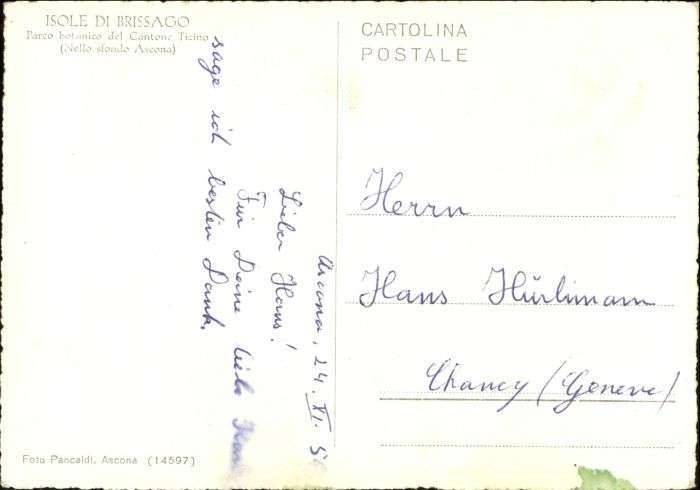 ISOLE DI BRISSAGO
Parco botanico del Cantone Ticino
(Nello sfondo Ascona)
CARTOLINA
POSTALE
Ascona, 24. XI. 5
Lieber Hans!
Für Deine liebe
sage ich besten Dank.
Herrn
Hans Hürlimann
Chancy (Geneve)
Foto Pancaldi, Ascona (14597)